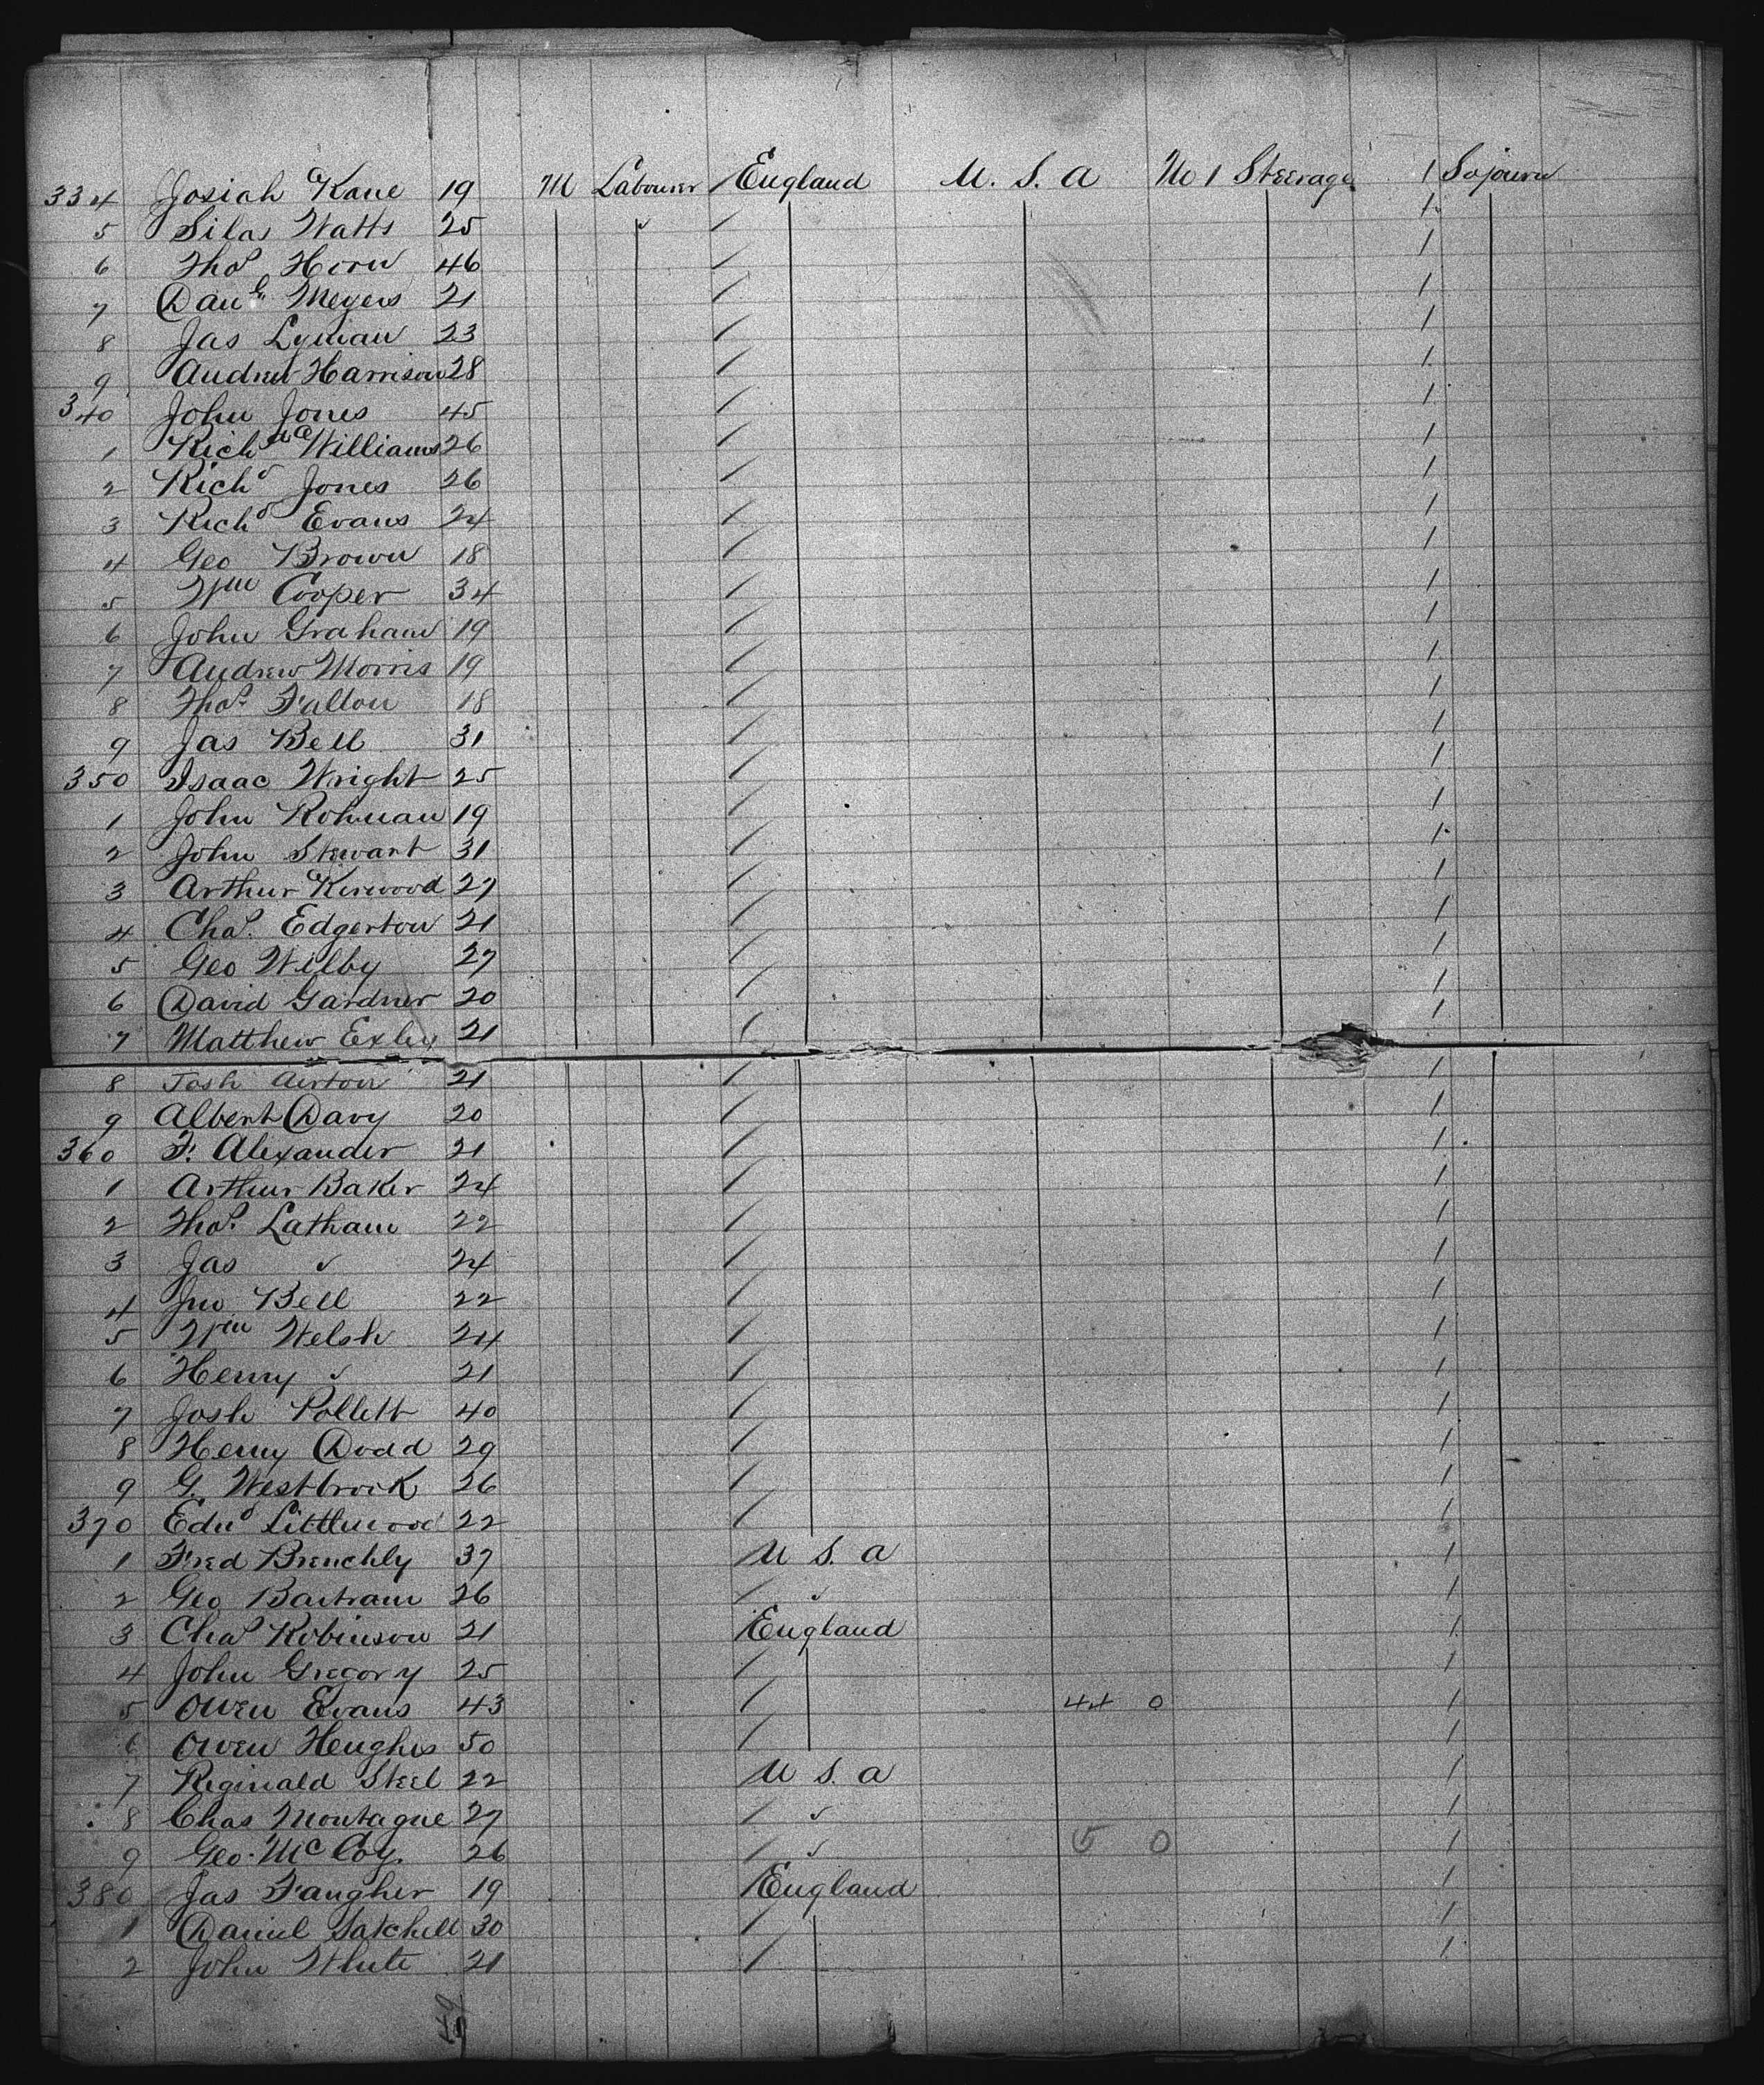 334 Josiah Kane 19 M Labourer / England U. S. A No 1 Steerage 1 Sojourn
5 Silas Watts 25 ✓ / 1
6 Thos Horn 46 / 1
7 Danl Meyers 21 / 1
8 Jas Lyman 23 / 1
9 Andrew Harrison 28 / 1
340 John Jones 45 / 1
1 Richd Williams 26 / 1
2 Richd Jones 26 / 1
3 Richd Evans 24 / 1
4 Geo Brown 18 / 1
5 Wm Cooper 34 / 1
6 John Graham 19 / 1
7 Andrew Morris 19 / 1
8 Thos Fallon 18 / 1
9 Jas Bell 31 / 1
350 Isaac Wright 25 / 1
1 John Rohman 19 / 1
2 John Stewart 31 / 1
3 Arthur Kirwood 27 / 1
4 Chas. Edgerton 21 / 1
5 Geo Wilby 27 / 1
6 David Gardner 20 / 1
7 Matthew Exley 21 / 1
8 Josh Airton 21 / 1
9 Albert Davy 20 / 1
360 F. Alexander 21 / 1
1 Arthur Baker 24 / 1
2 Thos. Latham 22 / 1
3 Jas ✓ 24 / 1
4 Jno Bell 22 / 1
5 Wm Welsh 24 / 1
6 Henry ✓ 21 / 1
7 Josh Pollett 40 / 1
8 Henry Dodd 29 / 1
9 G. Westbrook 26 / 1
370 Edwd Littlewood 22 / 1
1 Fred Brenchly 37 U S. A 1
2 Geo Bartram 26 / ✓ 1
3 Chas Robinson 21 England 1
4 John Gregory 25 / 1
5 Owen Evans 43 / 44 0 1
6 Owen Heughes 50 / 1
7 Reginald Steel 22 U S. A 1
8 Chas Montague 27 / ✓ 1
9 Geo. McCoy. 26 / ✓ 5 0 1
380 Jas Faugher 19 England 1
1 Daniel Satchell 30 / 1
2 John White 21 / 1